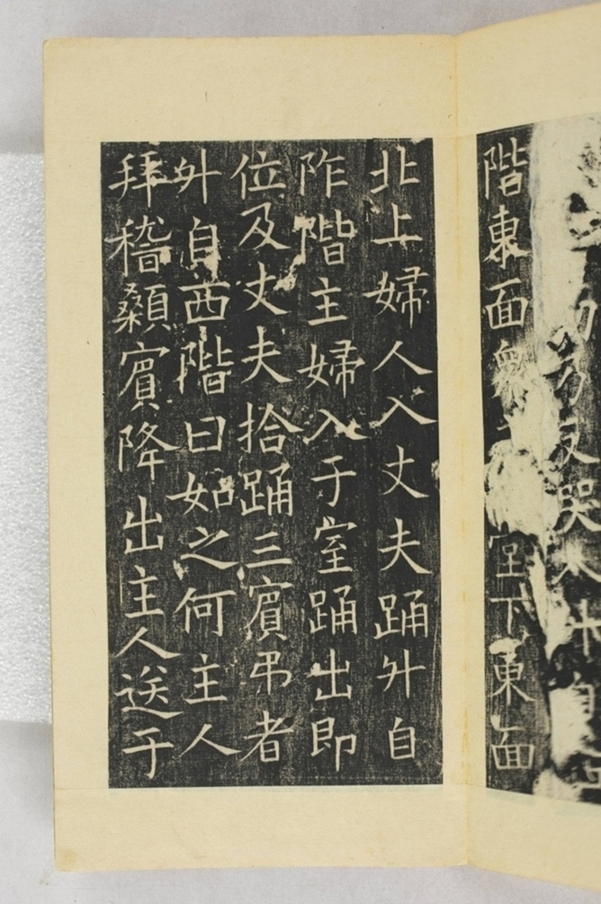 反哭入升自
階東面眾堂下東面
北上婦人入丈夫踊升自
阼階主婦入于室踊出即
位及丈夫拾踊三賓弔者
升自西階曰如之何主人
拜稽顙賓降出主人送于